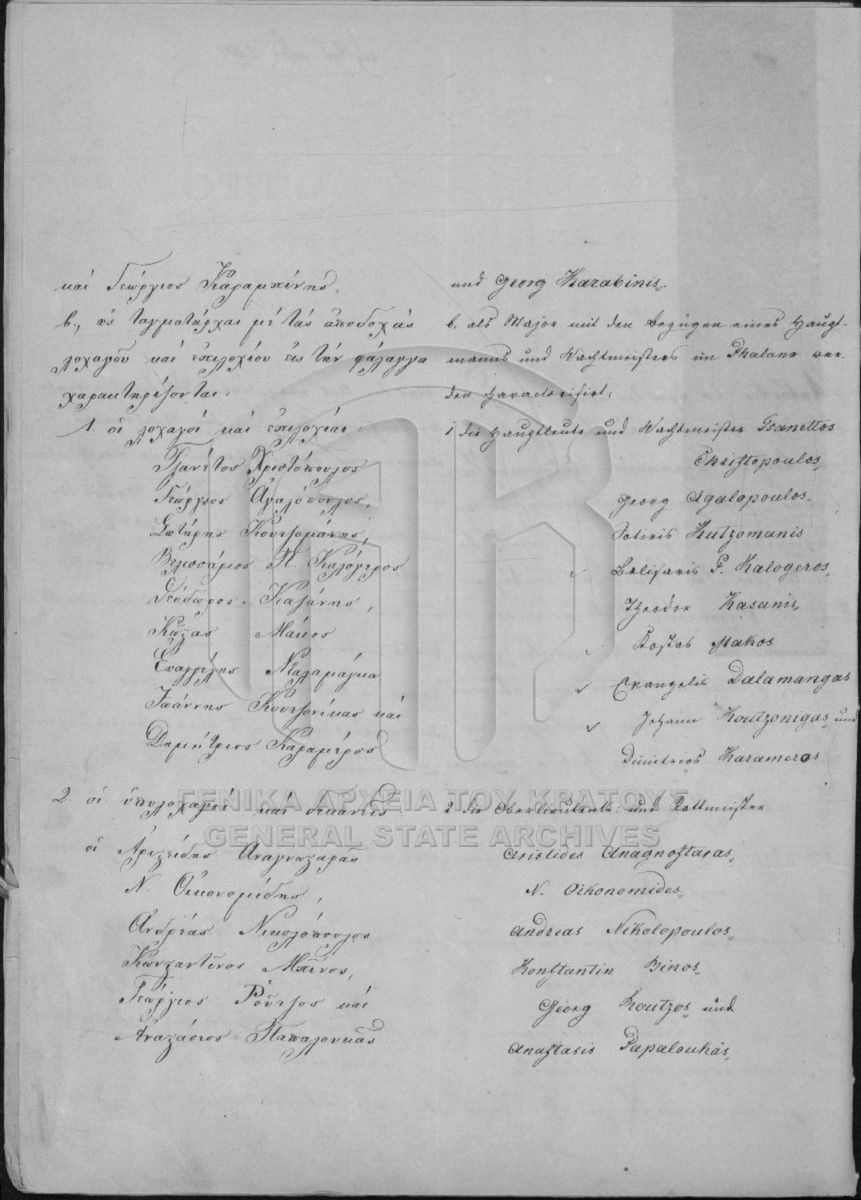 καὶ Γεώργιος Καραμπίνης.
β., ὡς ταγματάρχαι μὲ τὰς ἀποδοχὰς
λοχαγοῦ καὶ ἐπιλοχίου εἰς τὴν φάλαγγα
χαρακτηρίζονται:
1. οἱ λοχαγοὶ καὶ ἐπιλοχίαι:
Τζανέτος Χριστόπουλος
Γεώργιος Ἀγαλόπουλος,
Σωτήρης Κουτζομάνης,
Βελισσάριος Π. Καλόγερος
Θεόδωρος Καζάνης,
Κώστας Μάκος
Εὐαγγέλης Νταλαμάγκα
Ἰωάννης Κουτζονίκας καὶ
Δημήτριος Καραμέρος
2. οἱ ὑπολοχαγοὶ καὶ δεκανεῖς
οἱ Ἀριστείδης Ἀναγνωσταρᾶς
Ν. Οἰκονομίδης,
Ἀνδρέας Νικολόπουλος
Κωνσταντῖνος Μπῖνος,
Γεώργιος Ροῦτζος καὶ
Ἀναστάσιος Παπαλουκᾶς
und Georg Karabinis.
b. als Major mit den Bezügen eines Haupt-
manns und Wachtmeisters im Phalanx wer-
den characterisirt:
1 die Hauptleute und Wachtmeister Tsanettos
Christopoulos,
Georg Agalopoulos,
Sotiris Kutzomanis
Belisaris P. Kalogeros,
Theodor Kasanis,
Kostas Makos
Evangelis Dalamangas
Johann Koutzonigas und
Dimitrios Karameros
2 die Oberlieutents: und Rottmeister
Aristides Anagnostaras,
N. Oikonomides,
Andreas Nikolopoulos,
Konstantin Binos,
Georg Routzos und
Anastasis Papaloukas,
ΓΕΝΙΚΑ ΑΡΧΕΙΑ ΤΟΥ ΚΡΑΤΟΥΣ
GENERAL STATE ARCHIVES